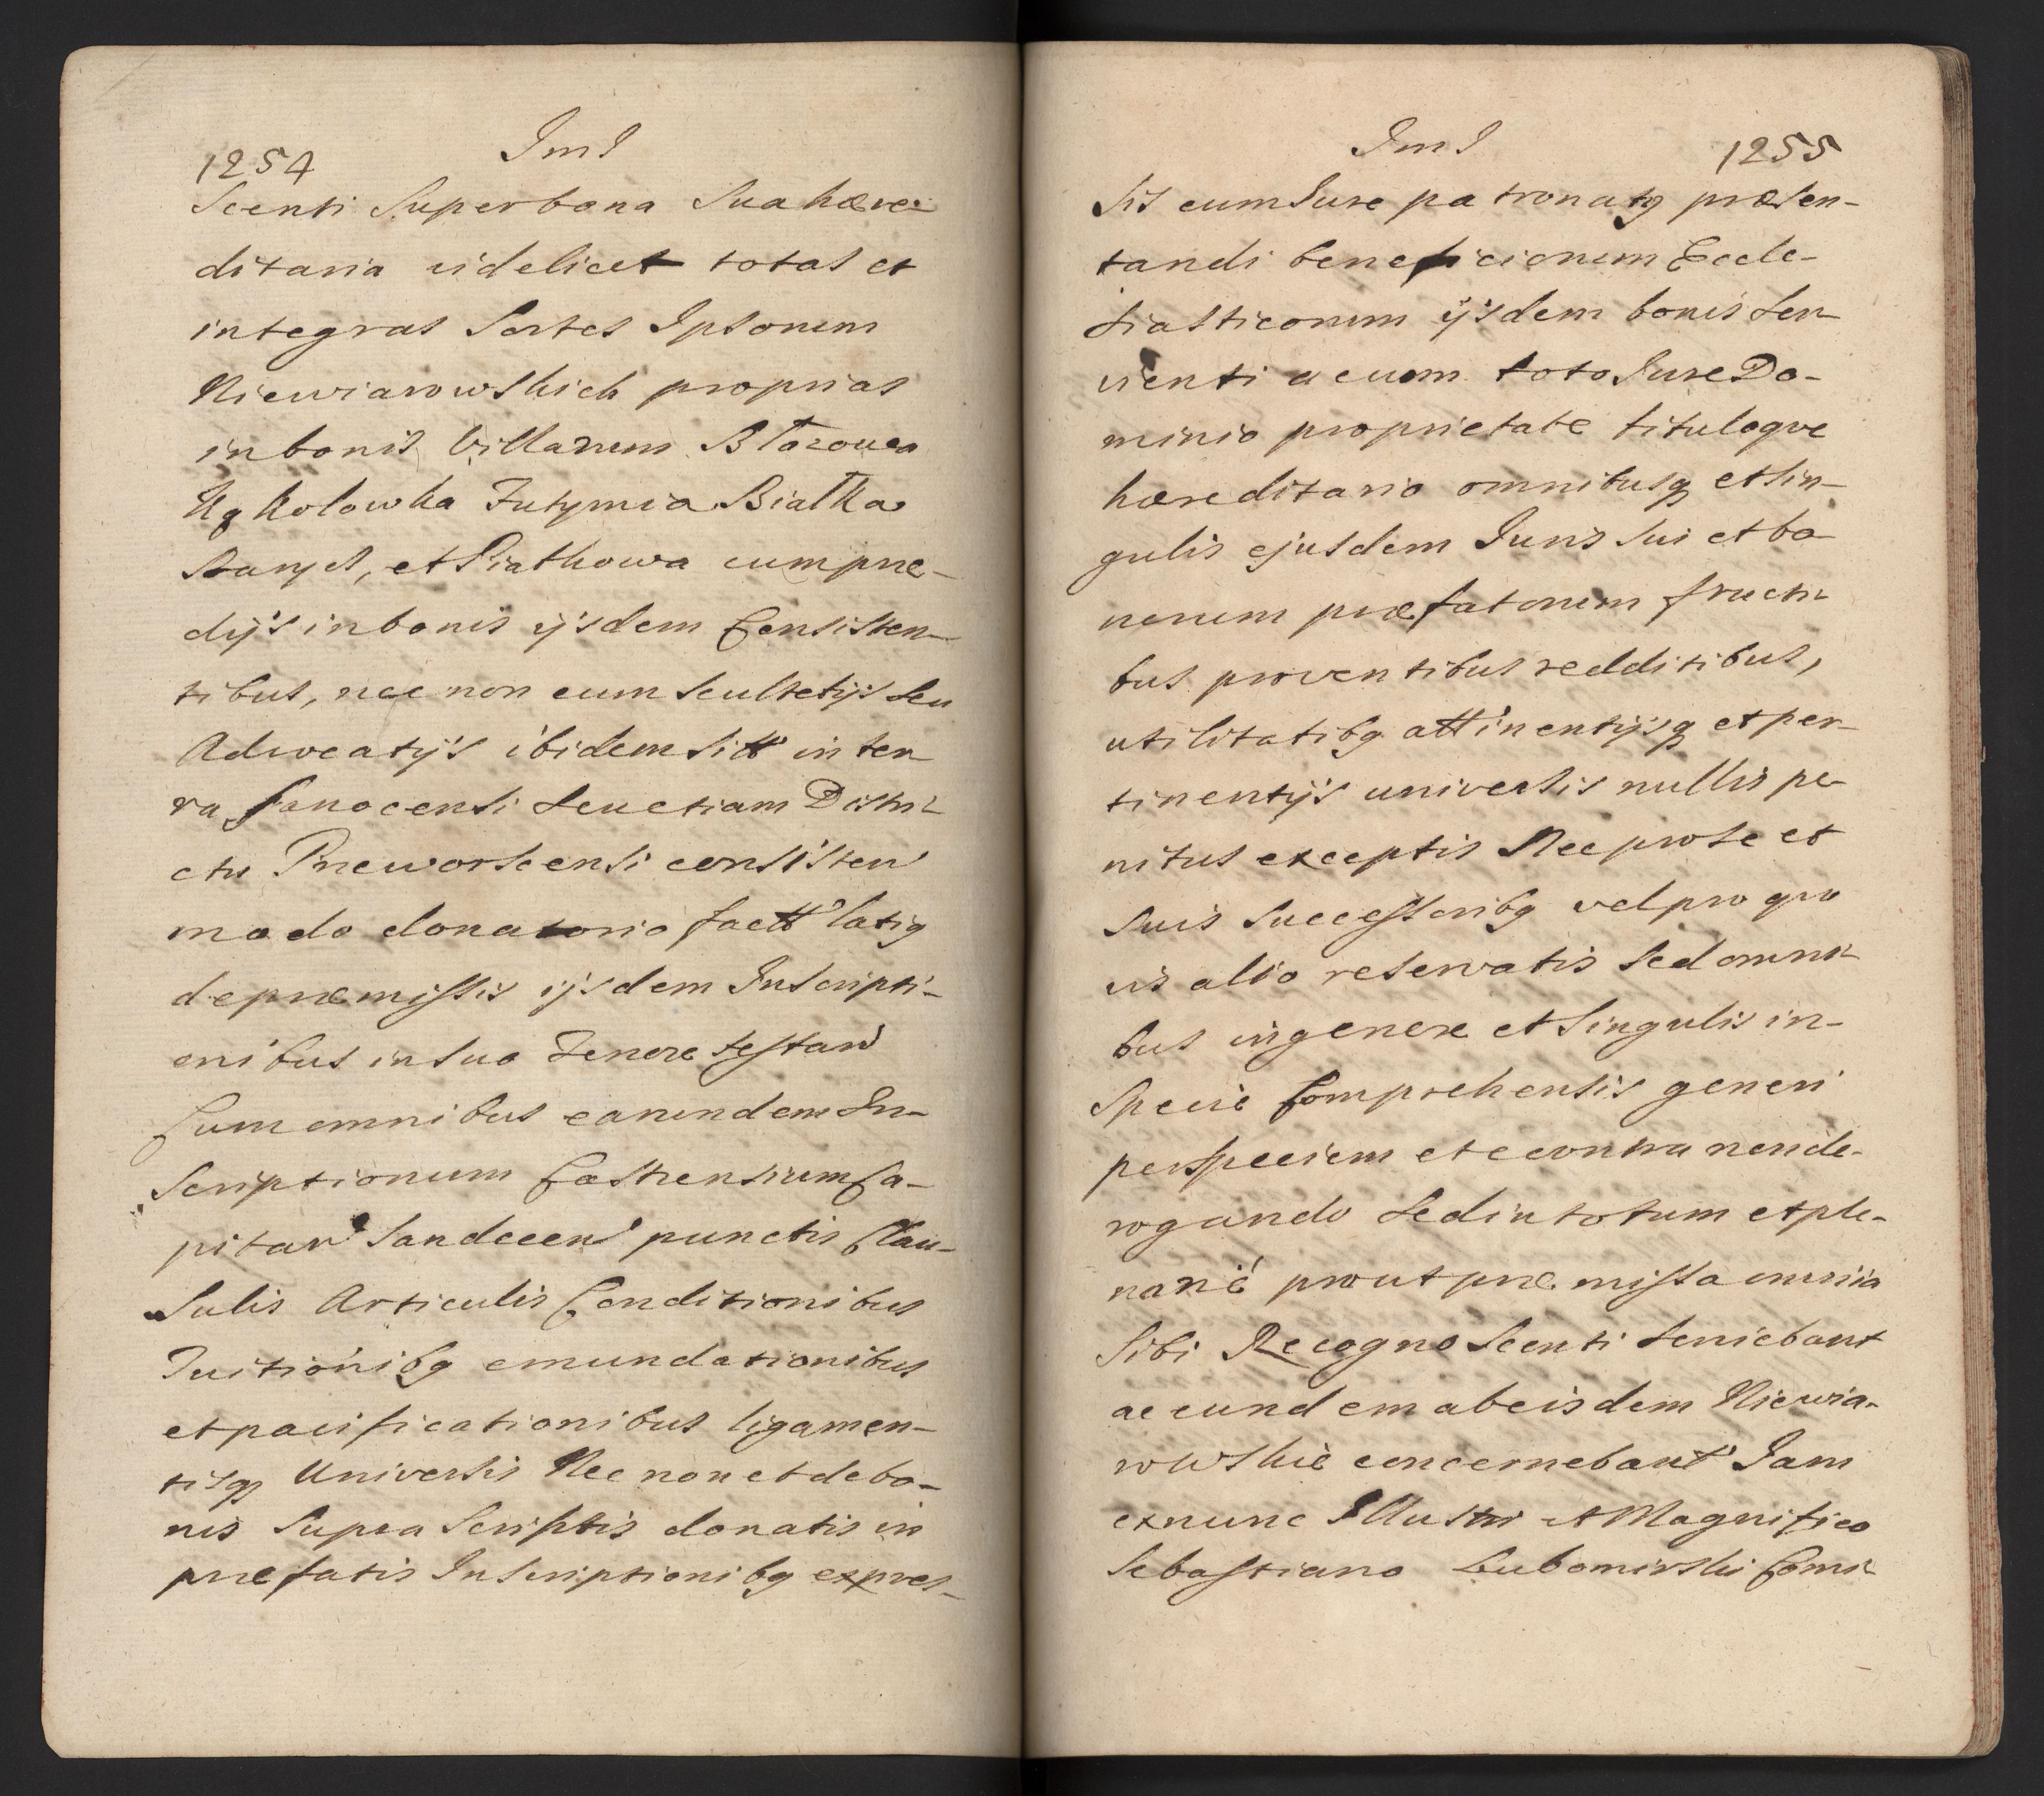 1254 Jms
Scenti Super bona Sua hære-
ditaria videlicet totas et
integras Sortes Ipsorum
Niewiarowskich proprias
in bonis Villarum Błazowa
Kąkolowka Futyma Białka
et Piatkowa cum præ-
dijs in bonis ijsdem Consisten-
tibus, nec non cum Scultetijs Seu
Advocatijs ibidem Sitt in ter-
ra Sanocensi Seu etiam Distri-
ctu Preworscensi consisten
modo donatorio factt latiq
de præmissis ijsdem Inscripti-
onibus in Suo Tenore testan
Cum omnibus earundem In-
Scriptionum Castrensium Ca-
pitan Sandecen punctis Clau-
Sulis Articulis Conditionibus
Tuitionibq emundationibus
et pacificationibus ligamen-
tisq Universis Nec non et de bo-
nis Supra Scriptis donatis in
præfatis Inscriptionibq expres-
Jms 1255
Sis cum Jure patronatq præsen-
tandi beneficiorum Eccle-
Siasticorum ijsdem bonis Ser-
vienti a cum toto Jure Do-
minio proprietate tituloqve
hæreditario omnibusq et Sin-
gulis ejusdem Juris Sui et bo-
norum præfatorum fructi-
bus proventibus redditibus,
utilitatibq attinentijsq et per-
tinentijs universis nullis pe-
nitus exceptis Nec pro Se et
Suis Successoribq vel pro quo
vis alio reservatis Sed omni-
bus in genere et Singulis in-
Specie Comprehensis generi
per Speciem et e contra non de-
rogando Sed in totum et ple-
narie prout præmissa omnia
Sibi RecognoScenti Serviebant
ac eundem ab eisdem Niewia-
rowskie concernebant Jam
ex nunc Illustri et Magnifico
Sebastiano Lubomirski Comi-